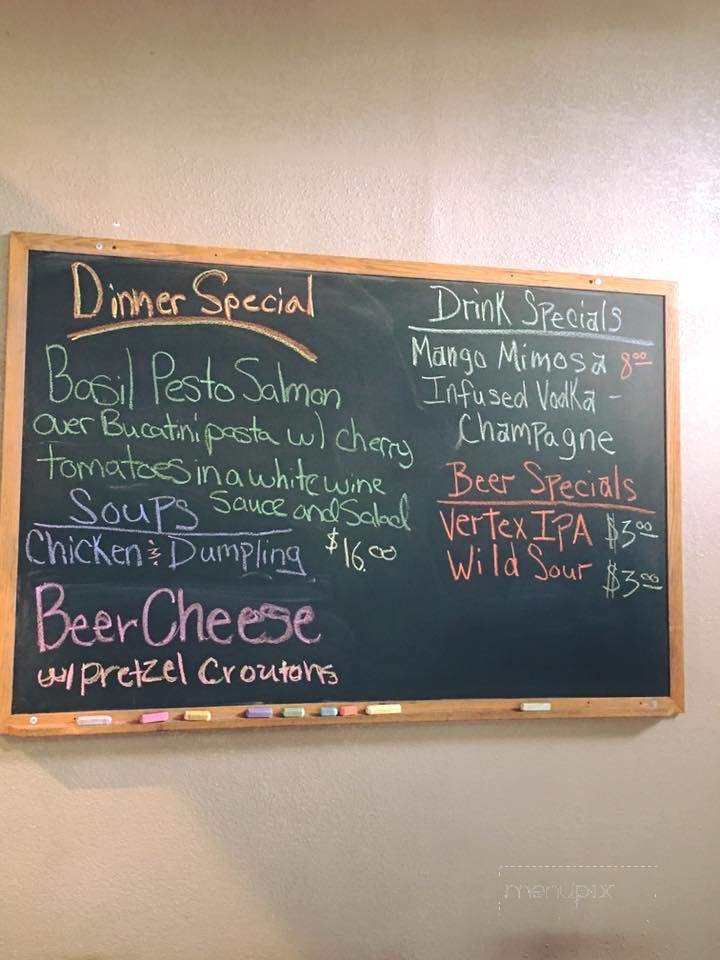 Dinner Special
Basil Pesto Salmon
over Bucatini pasta w/ cherry
tomatoes in a white wine
Sauce and Salad
$16.00
Soups
Chicken & Dumpling
Beer Cheese
w/ pretzel croutons
Drink Specials
Mango Mimosa 8.00
Infused Vodka -
Champagne
Beer Specials
Vertex IPA $3.00
Wild Sour $3.00
menupix